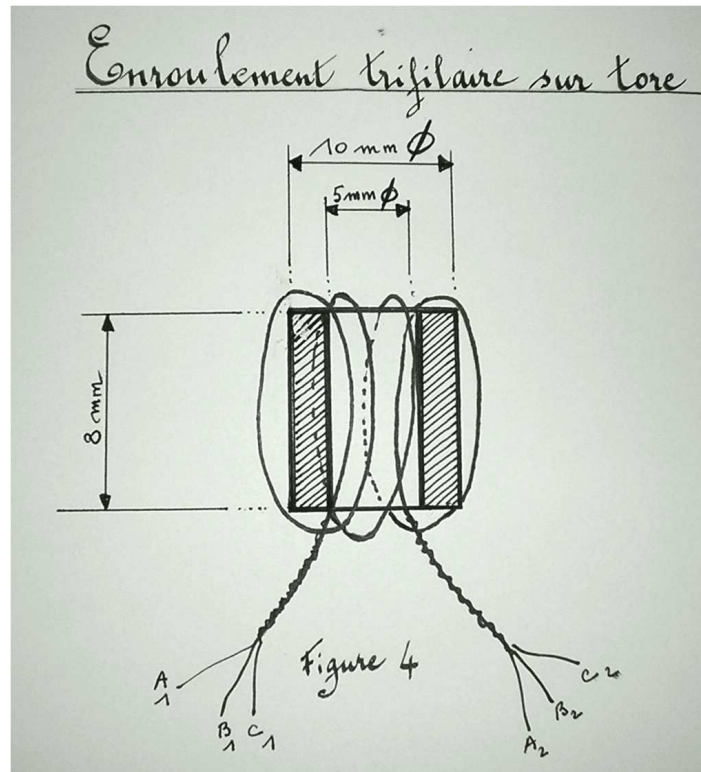 Enroulement trifilaire sur tore
10 mm Ø
5mm Ø
8 mm
Figure 4
A1
B1
C1
C2
B2
A2